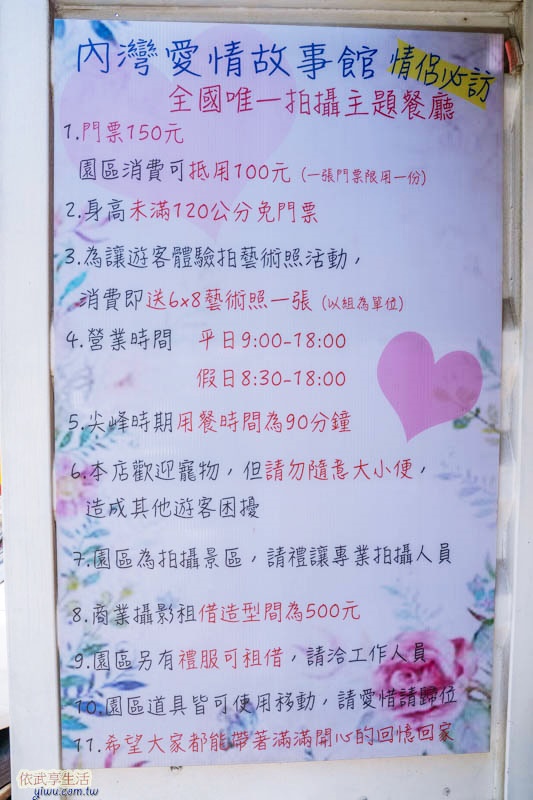 內灣愛情故事館 情侶必訪
全國唯一拍攝主題餐廳
1.門票150元
園區消費可抵用100元（一張門票限用一份）
2.身高未滿120公分免門票
3.為讓遊客體驗拍藝術照活動，
消費即送6x8藝術照一張（以組為單位）
4.營業時間 平日9:00-18:00
假日8:30-18:00
5.尖峰時期用餐時間為90分鐘
6.本店歡迎寵物，但請勿隨意大小便，
造成其他遊客困擾
7.園區為拍攝景區，請禮讓專業拍攝人員
8.商業攝影租借造型間為500元
9.園區另有禮服可租借，請洽工作人員
10.園區道具皆可使用移動，請愛惜請歸位
11.希望大家都能帶著滿滿開心的回憶回家
依武享生活
yiwu.com.tw